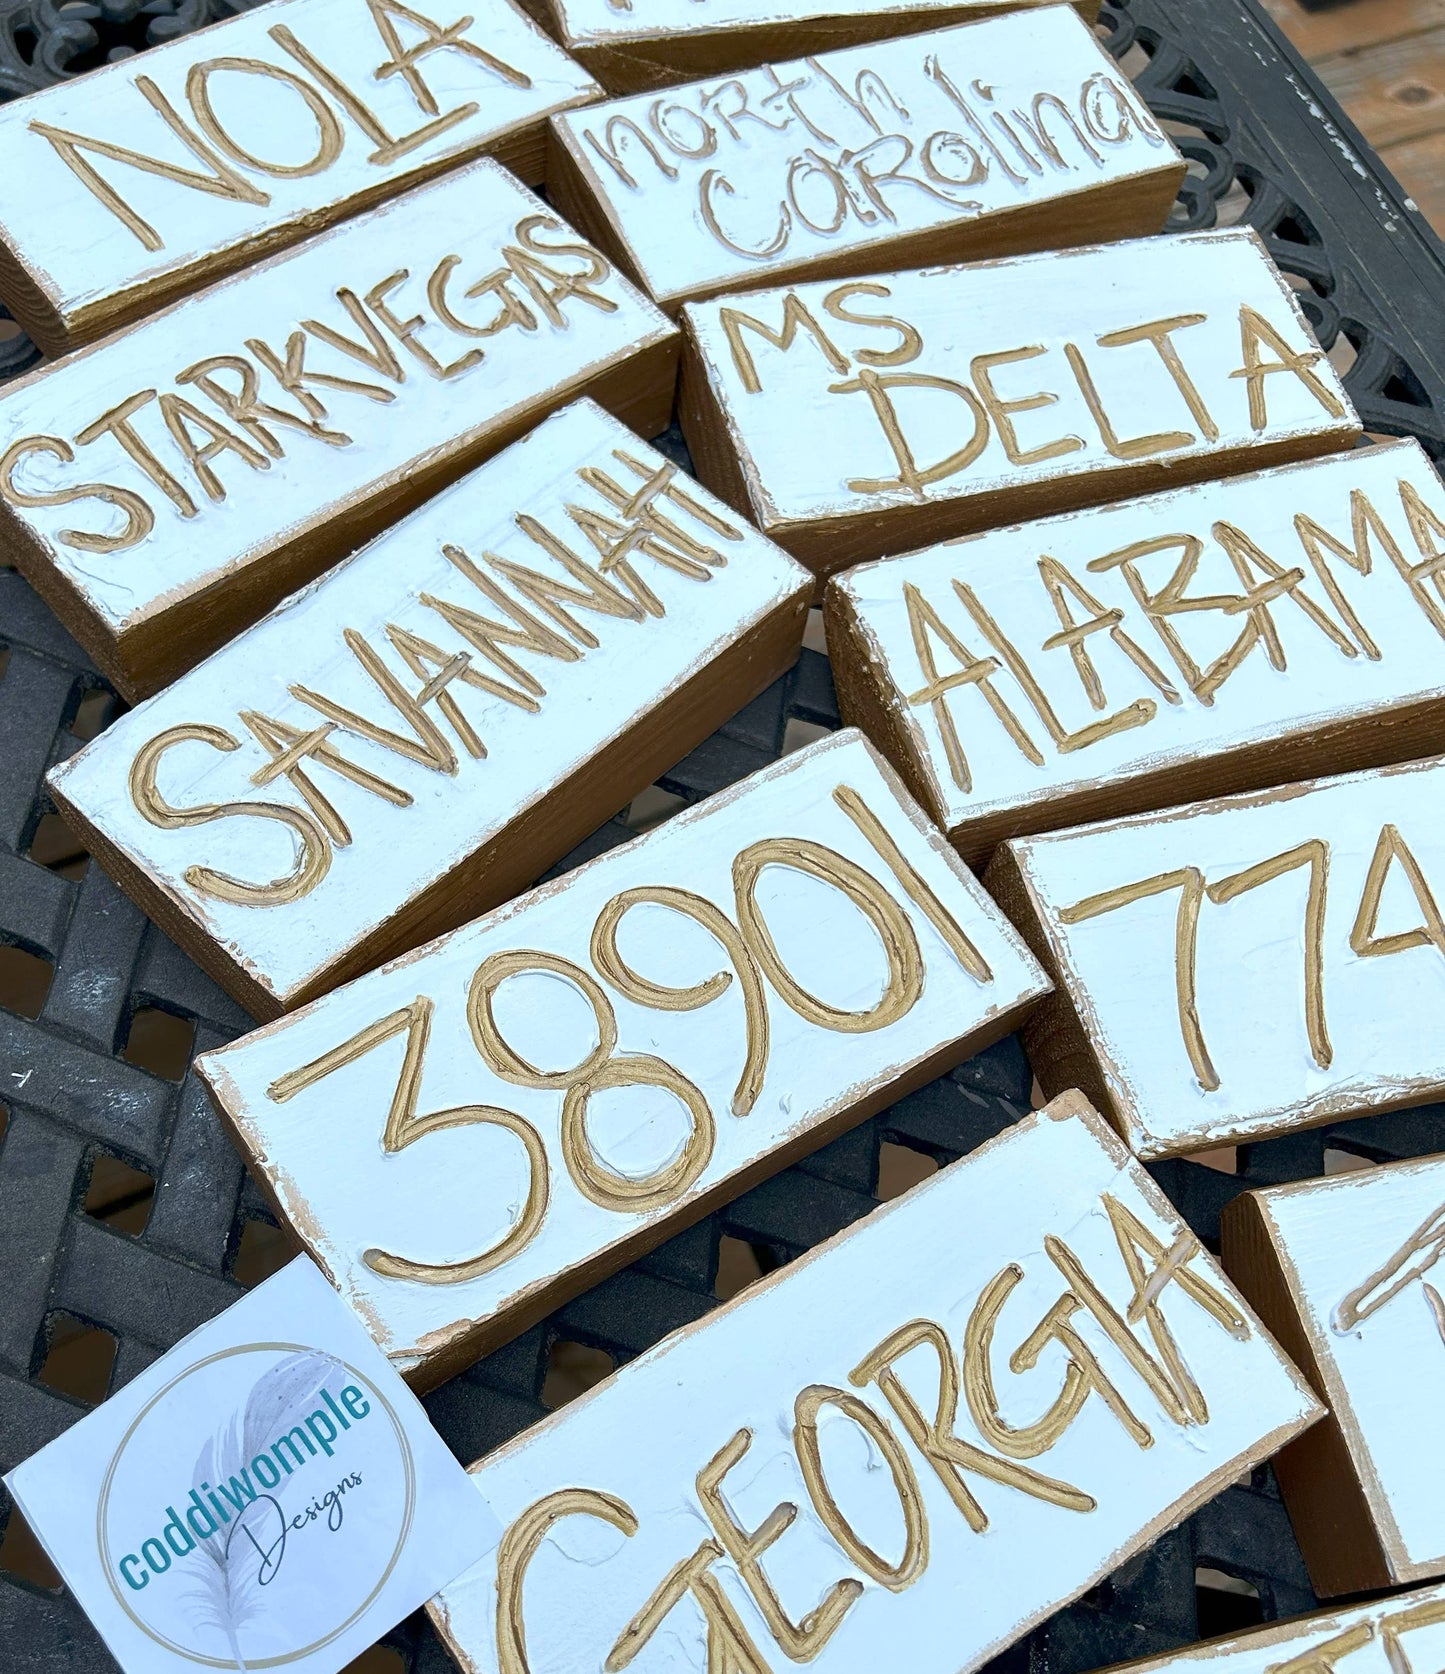 NOLA
NORTH
CAROlina
STARKVEGAS
MS
DELTA
SAVANNAH
ALABAMA
38901
774
GEORGIA
coddiwomple
Designs